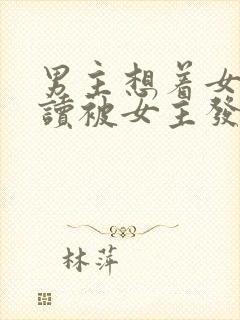 男主想着女
讀被女主發
林萍